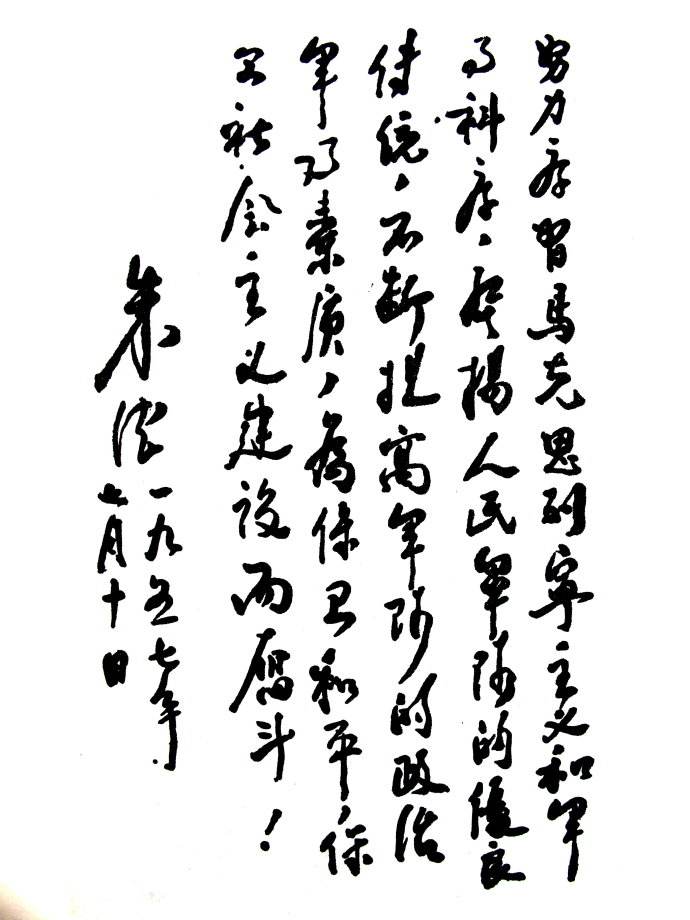 努力学习马克思列宁主义和军
事科学，发扬人民军队的优良
传统，不断提高军队的政治
军事素质，为保卫和平，保
卫社会主义建设而奋斗！
朱德 一九五七年
七月十日